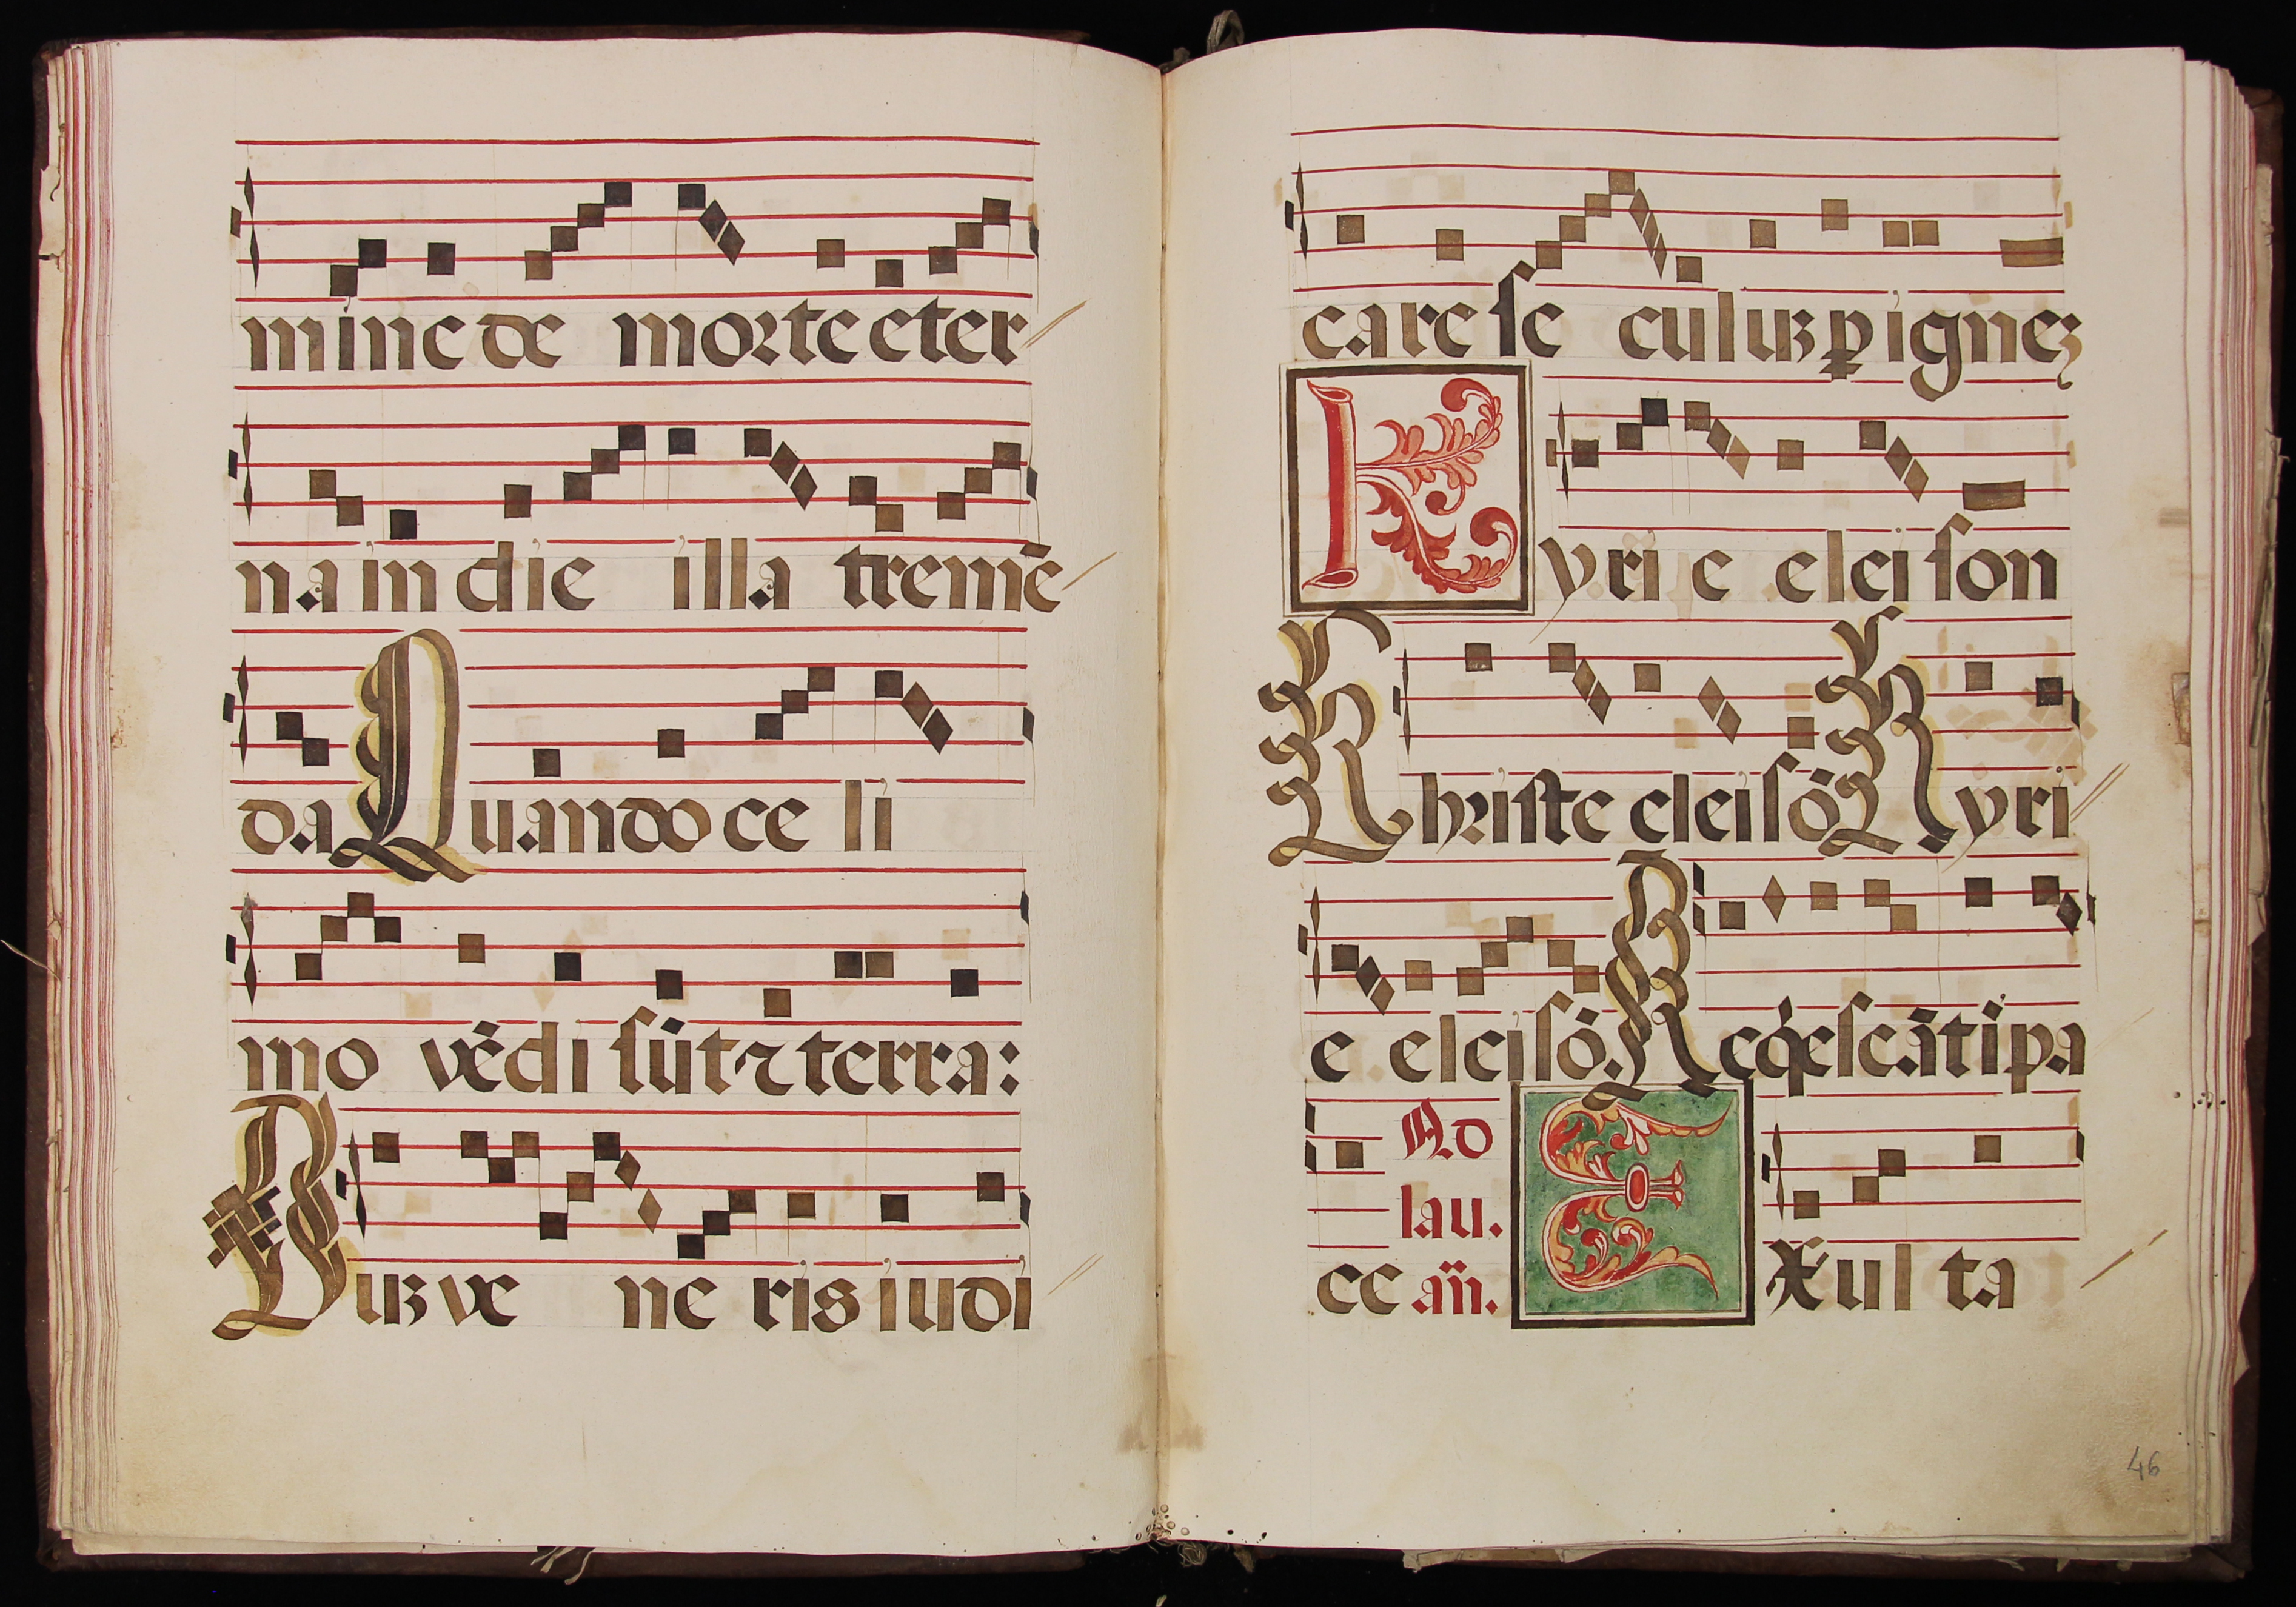 mine de morte eter
na in die illa tremē
da Quando celi
mouēdi sūt ⁊ terra:
Duꝫ veneris iudi
care seculuꝫ ꝑ igneꝫ
Kyrie eleison
Christe eleisō Kyri
e eleisō. Reqͥescāt ī pa
Ad
lau.
ce añ. Exulta
46